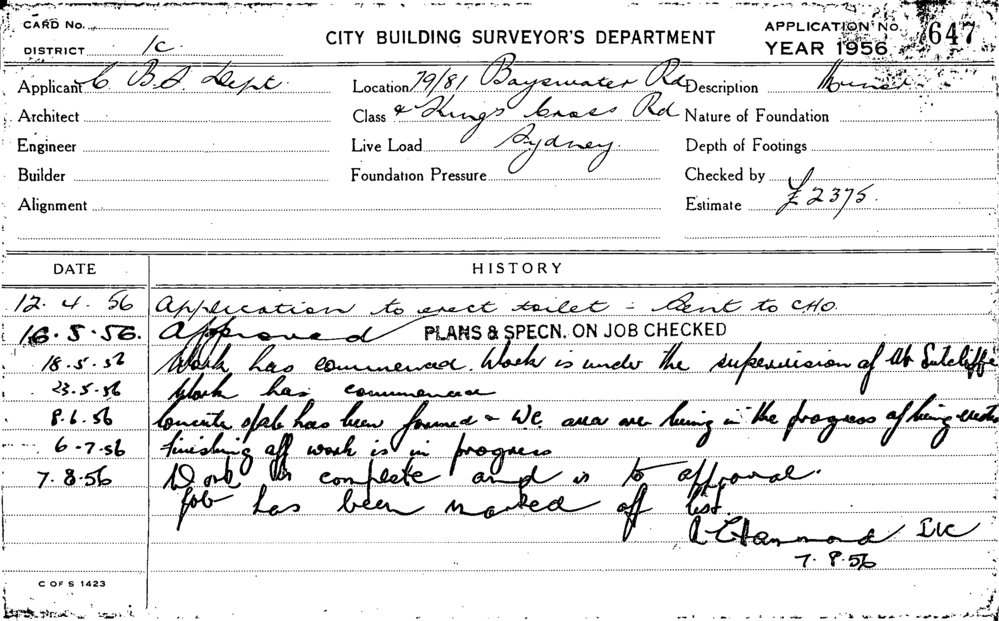 CARD No.
DISTRICT 1c
CITY BUILDING SURVEYOR'S DEPARTMENT
APPLICATION No. 647
YEAR 1956
Applicant C B.S. Dept.
Location 79/81 Bayswater Rd
Description
Architect
Class & Kings Cross Rd
Nature of Foundation
Engineer
Live Load Sydney.
Depth of Footings
Builder
Foundation Pressure
Checked by
Alignment
Estimate £2375.
DATE HISTORY
12. 4. 56 Application to erect toilet - Sent to CHO.
16.5.56. Approved PLANS & SPECN. ON JOB CHECKED
18.5.56 Work has commenced. Work is under the supervision of Mr Sutcliffe
23.5.56 Work has commenced
8.6.56 Concrete slab has been formed & WC area are being in the progress of being erected
6-7-56 Finishing off work is in progress
7.8.56 Work is complete and is to approval.
Job has been marked off list.
Hammond
7.8.56
C OF S 1423